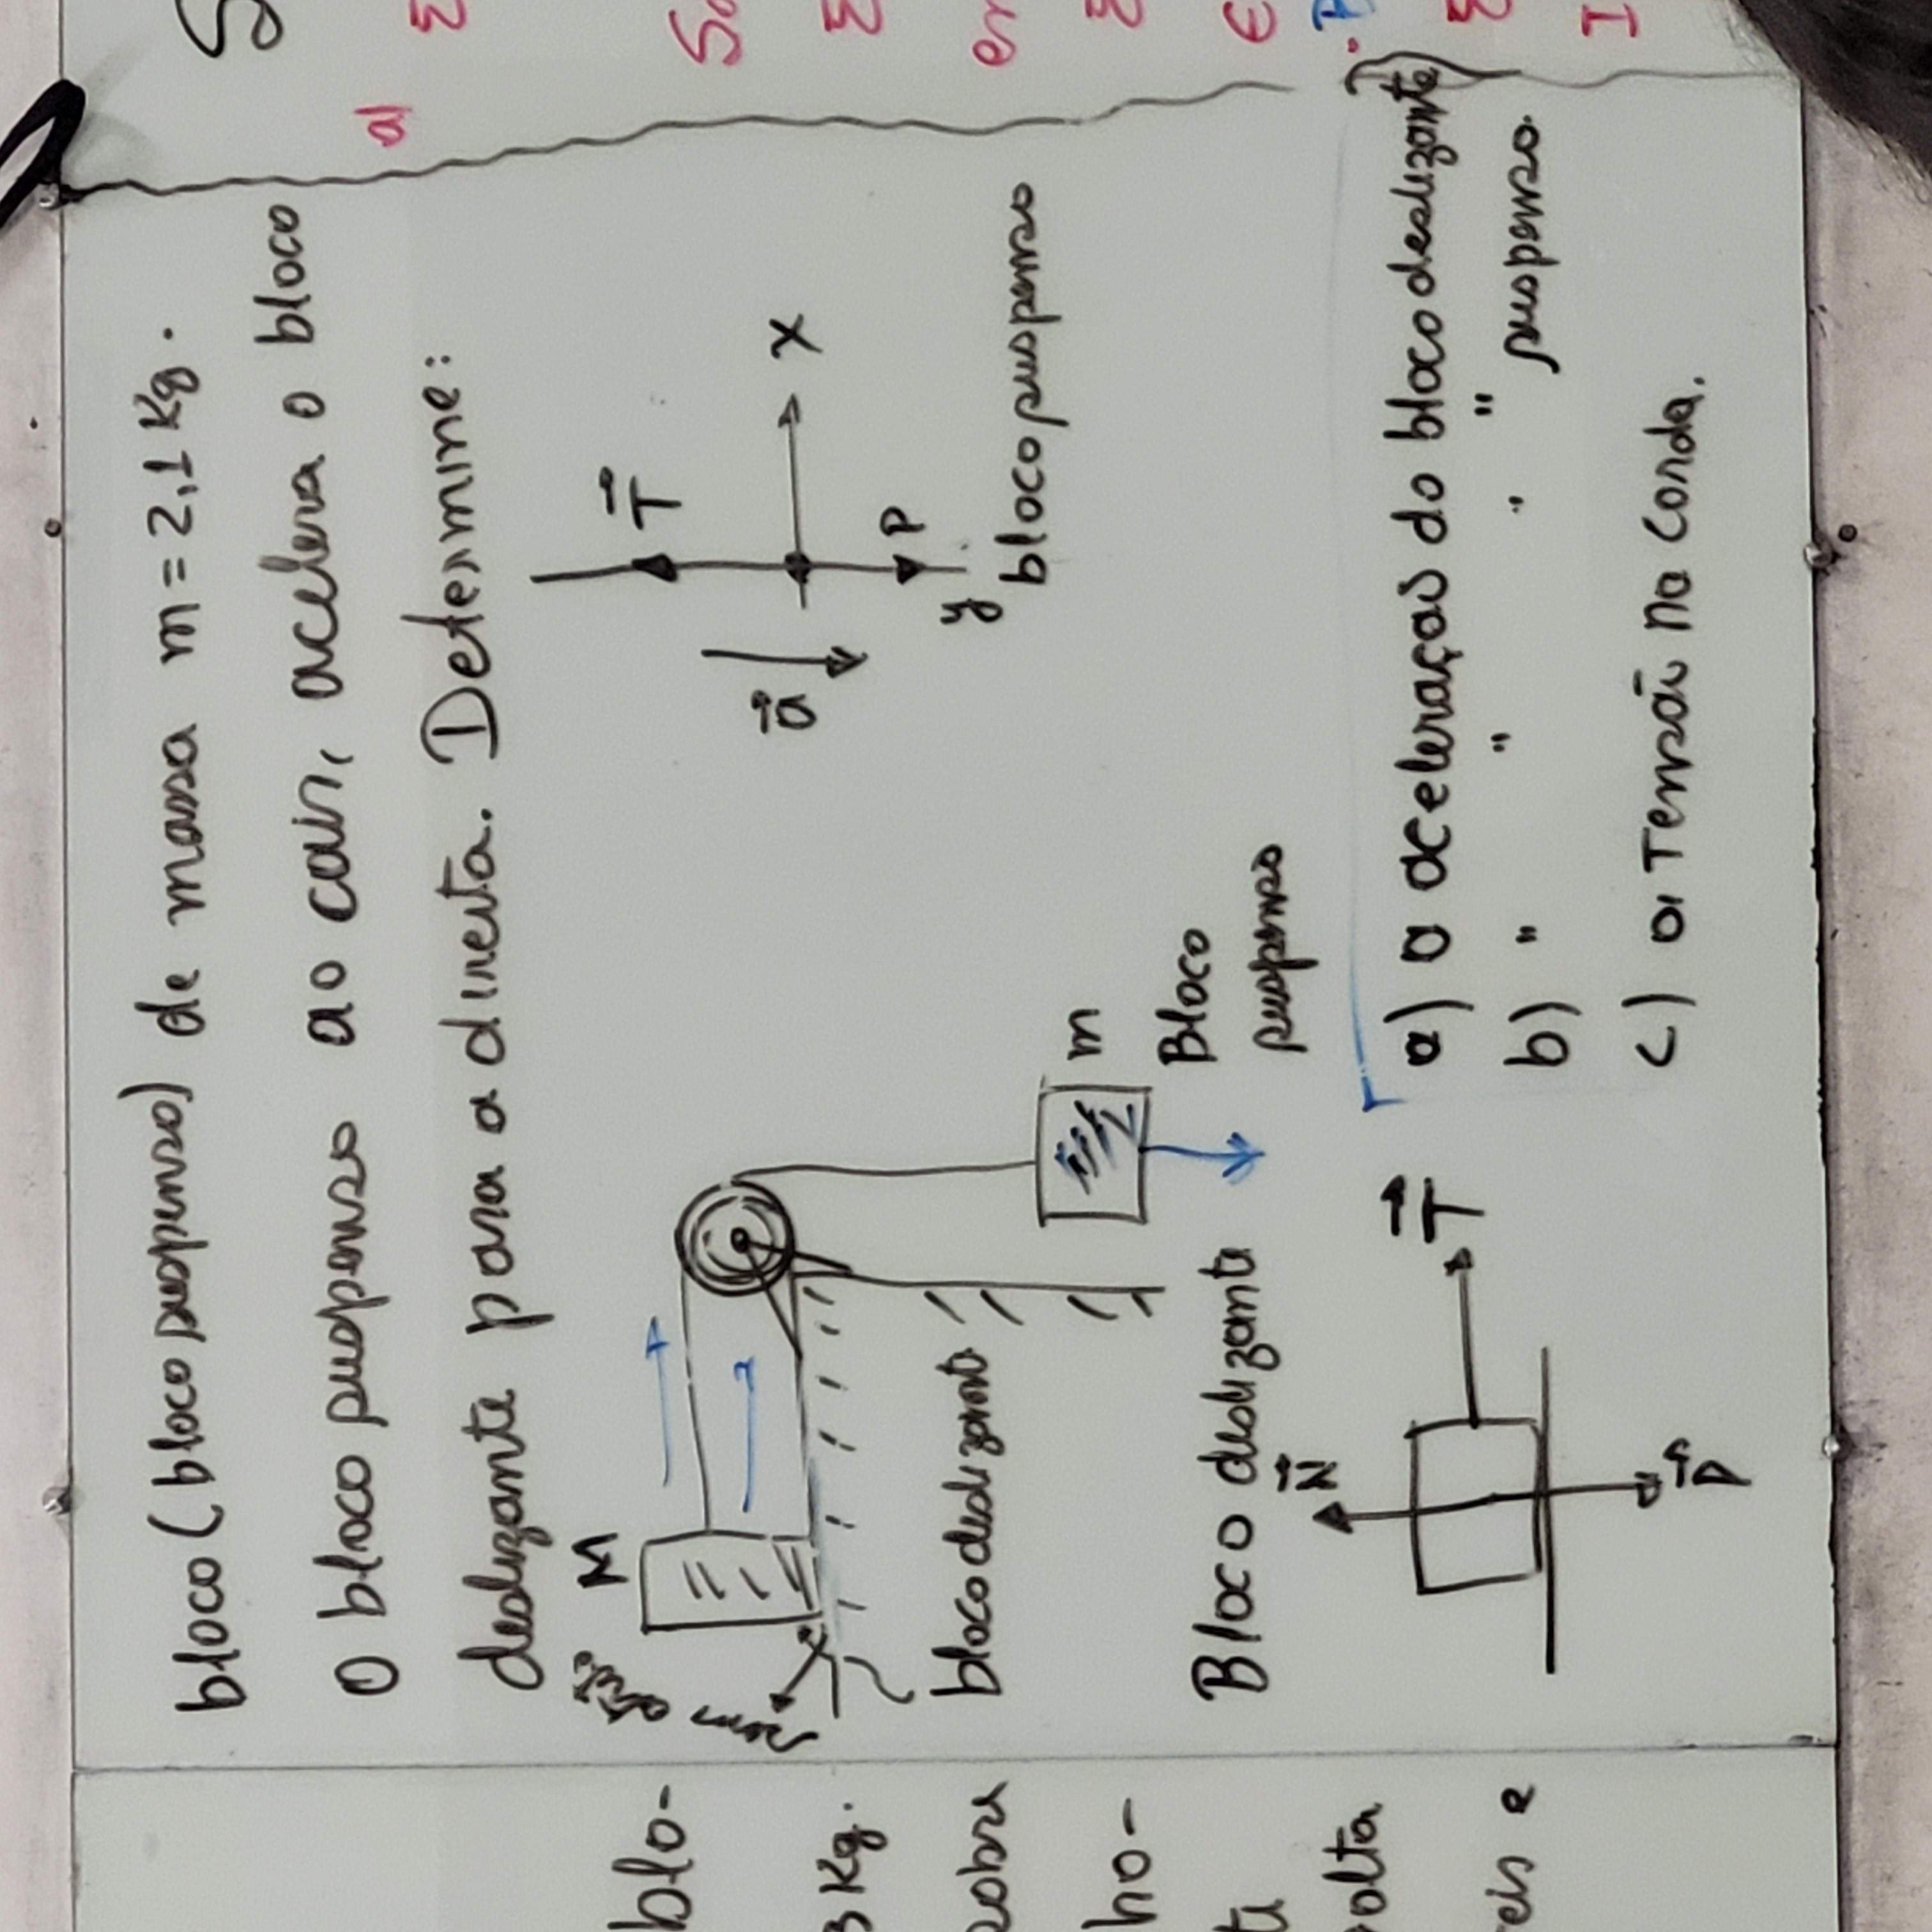 blo-
3 Kg.
sobre
ho-
te
olta
eis e
bloco (bloco suspenso) de massa m = 2,1 Kg.
O bloco suspenso ao cair, acelera o bloco
deslizante para a direita. Determine:
M
sem
m
Bloco
suspenso
bloco deslizante
T
a
X
P
y
bloco suspenso
Bloco deslizante
N
T
P
a) a aceleração do bloco deslizante
b) " " " " suspenso.
c) a Tensão na corda.
S
a)
Σ
Σ